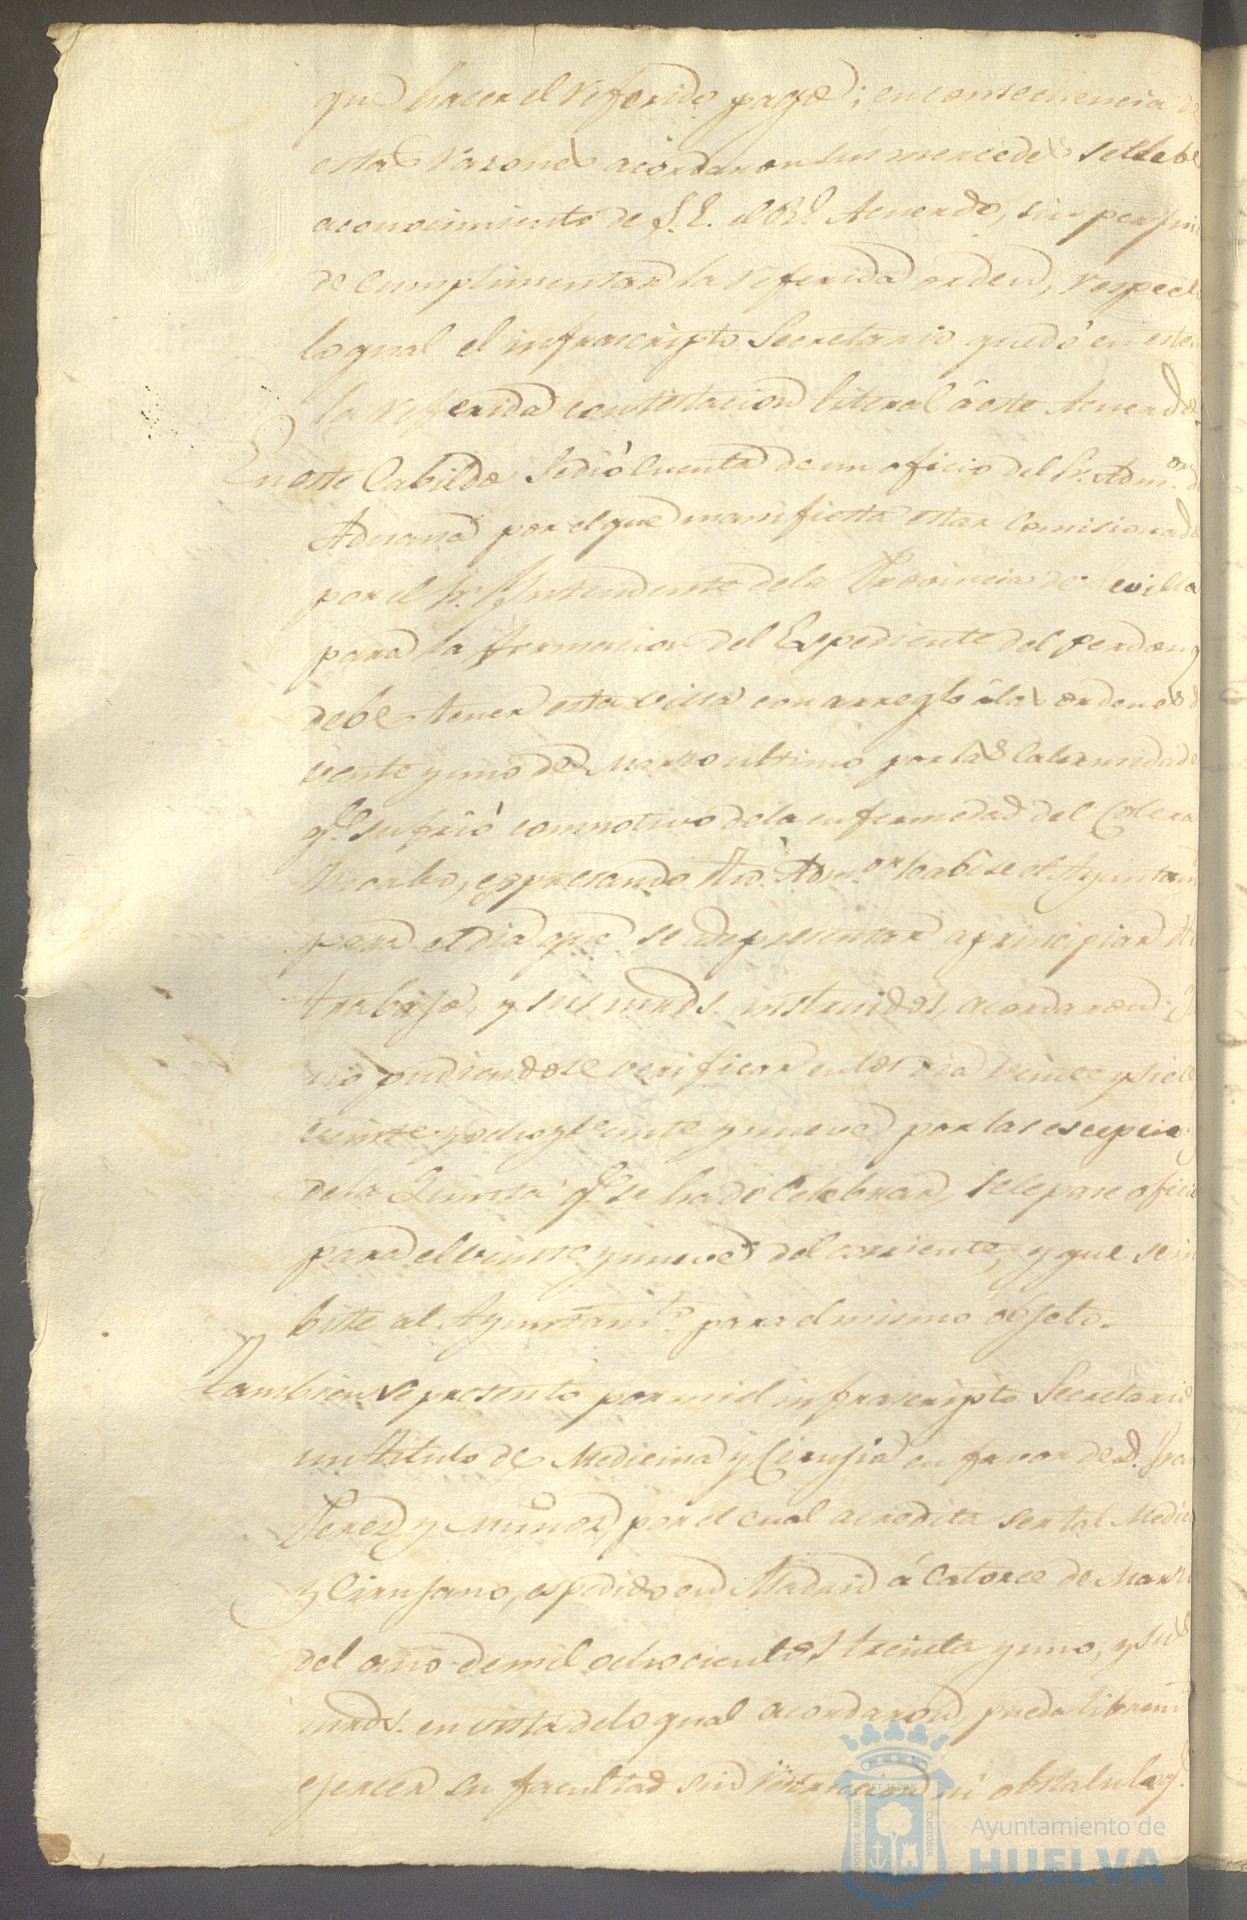 que hacer el referido pago; en consecuencia de
estas razones acordaron sus mercedes se lleve
a conocimiento de S.E. el Rl. Acuerdo, sin perjui
de cumplimentar la referida orden, respect
lo qual el infrascripto Secretario quedó en este
la referida contestacion literal á este Acuerdo
En este Cabildo se dió cuenta de un oficio del Sr. Admor. d
Aduana por el que manifiesta estar comisionado
por el Sr. Yntendente de la Provincia de Sevilla
para la formacion del Espediente del perdon q
debe tener esta villa con arreglo á las ordenes d
veinte y uno de Marzo ultimo por las calamidade
qe. sufrió con motivo de la enfermedad del Colera
Morbo, espresando dho. Admor. havise el Ayuntam
para el dia que se ade presentar a principiar
trabajo, y sus mrds. instruidos, acordaron:
no pudiendose verificar en los dia veinte y siete
veinte y ocho y veinte y nueve por las escepcio
de la Quinta qe. se ha de celebrar, se le pase oficio
para el veinte y nueve del corriente, y que se in
bite al Ayuntamto. para el mismo objeto.
Tambien se presentó por mi el infrascripto Secretario
un titulo de Medicina y Cirujia en favor de D. Fran
Perez y Muñoz, por el cual acredita ser tal Medic
y Cirujano, espedido en Madrid á catorce de Marzo
del año de mil ochocientos treinta y uno, y sus
mrds. en vista de lo qual acordaron, pueda librem
ejercer su facultad sin restriccion ni obstaculo q.
PORTUS MARIS ET TERRAE CUSTODIA
Ayuntamiento de
HUELVA